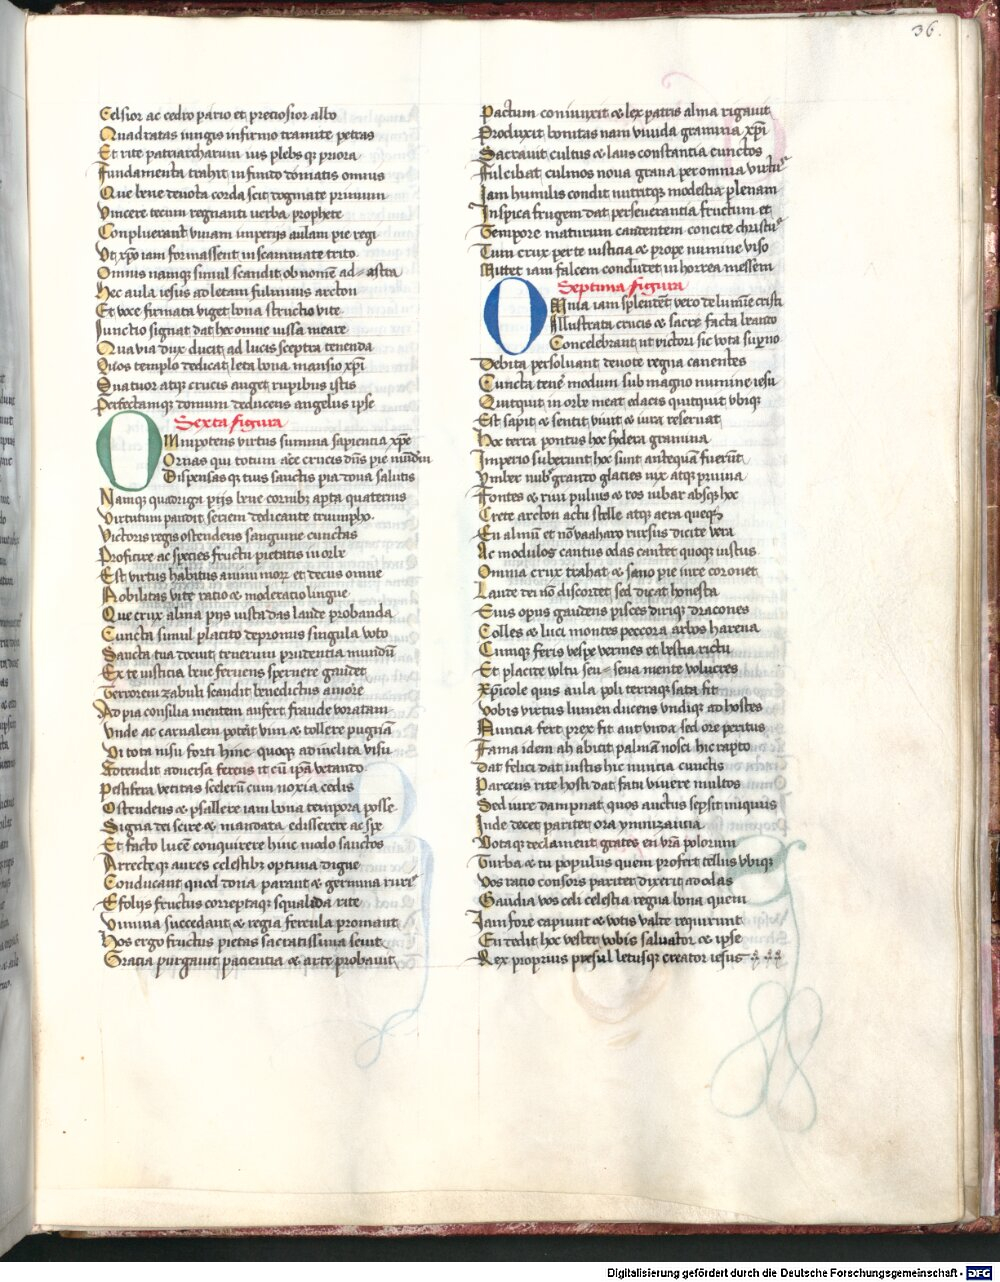 36.
Celsior ac cedro pario et preciosior albo
Quadratas iungis infirmo tramite petras
Et rite patriarcharum ius plebs qз priora
Fundamenta trahit infinito domatis omnis
Que bene deuota corda scit dogmate primum
Vincere tecum regnanti uerba prophete
Conpluerant viuam imperijs aulam pie regi
Vt xp̄o iam formassent in scammate trito
Omnis namqз simul scandit ob nomē ad astra
Hec aula iesus ad letam fulminis arcton
Et voce firmata viget bona structio vite
Iunctio signat dat hec omne iussa meare
Qua via dux ducit ad lucis sceptra tenenda
Quos templo dedicat leta bona mansio xp̄i
Quatuor atqз crucis auget rupibus istis
Perfectamqз domum deducens angelus ipse
Sexta figura
OMnipotens virtus summa sapientia xp̄e
Ornas qui totum
Dispensas qз tuis sanctis pia dona salutis
Namqз quadriga pijs bene cornibз apta quaternis
Virtutum pandit seriem dedicante triumpho
Victoris regis ostendens sanguine cunctas
Proficere ac species fructu pietatis in orbe
Est virtus habitus animi morꝝ et decus omne
Nobilitas vite ratio et moderatio lingue
Que crux alma pijs iusta das laude probanda
Cuncta simul placito depromis singula voto
Sancta tua docuit trucrum prudentia mundū
Ex te iusticia bene feruens spernere gaudet
Terrorem zabuli scandit benedictus amore
Ad pia consilia mentem aufert fraude voratam
Vnde ac carnalem poterit vim et tollere pugnā
Vi tota nisu forti hinc quoqз ad inclita visu
Pestifera vetitas scelerū cum noxia cedis
Ostendens et psallere iam bona tempora posse
Signa dei scire et mandata edisserere ac spe
Et facto lucem conquirere hinc modo sanctos
Arrecteqз aures celestibз optima digne
Conducant quod dona parant et germina ruris
E folijs fructus correptaqз squalida rite
Vimina succedant et regia fercula promant
Hos ergo fructus pietas sacratissima seuit
Gracia purgauit paciencia et arte probauit
Pactum coniunxit et lex patris alma rigauit
Produxit bonitas nam viuida gramina xp̄i
Sacrauit cultus et laus constantia cunctos
Fulcibat culmos noua grana per omnia virtus
Iam humilis condit nutritqз modestia plenam
In spica frugem dat perseuerantia fructum et
Tempore maturum candentem concite christus
Tum crux per te iusticia et prope numine viso
Mittet iam falcem condatet in horrea messem
Septima figura
OMnia iam splendent vero de lumīe cristi
Illustrata crucis et sacre facta beando
Concelebrant ut victori sic vota supno
Debita persoluant deuote regna canentes
Cuncta tene modum sub magno numine iesu
Quitquit in orbe meat edacis quitquit vbiqз
Est sapit et sentit viuit et iura reseruat
Hoc terra pontus hoc sydera gramina
Imperio suberunt hoc sunt antequā fuerūt
Ymber nubз grando glacies nix atqз pruina
Fontes et riui pulius et ros iubar absqз hoc
Crete arcton actu stelle atqз aera queqз
En almū et nō vaaharo rursus dicite vera
Ac modulos cantus odas cantet quoqз iustus
Omnia crux trahat et sano pie iure coronet
Laude dei nō discordet sed dicat honesta
Suis opus gaudens pisces dirīqз dracones
Colles et luci montes peccora arbos harena
Cumqз feris vespe vermes et bestia rictu
Et placite vultu seu seua mente volucres
Xp̄icole quis aula poli terraqз sata fit
Vobis virtus lumen ducens vndiqз ad hostes
Nuncia fert prex fit aut vnda sed ore peritus
Fama idem ah abicit palmā nosci hic rapto
Dat felici dat iustis hic nuncia cunctis
Parcens rite hosti dat fatu viuere multos
Sed iure dampnat quos auctus sepsit iniquus
Inde decet pariter ora ymnizancia
Votaqз reclament grates en vrā polorum
Turba et tu populus quem profert tellus vbiqз
Vos ratio consors pariter dixerit ad odas
Gaudia vos celi celestia regna bona quem
Iam fore capiunt et votis valde requirunt
En redit hoc vester vobis saluator et ipse
Rex proprius presul letusqз creator iesus
Digitalisierung gefördert durch die Deutsche Forschungsgemeinschaft - DFG